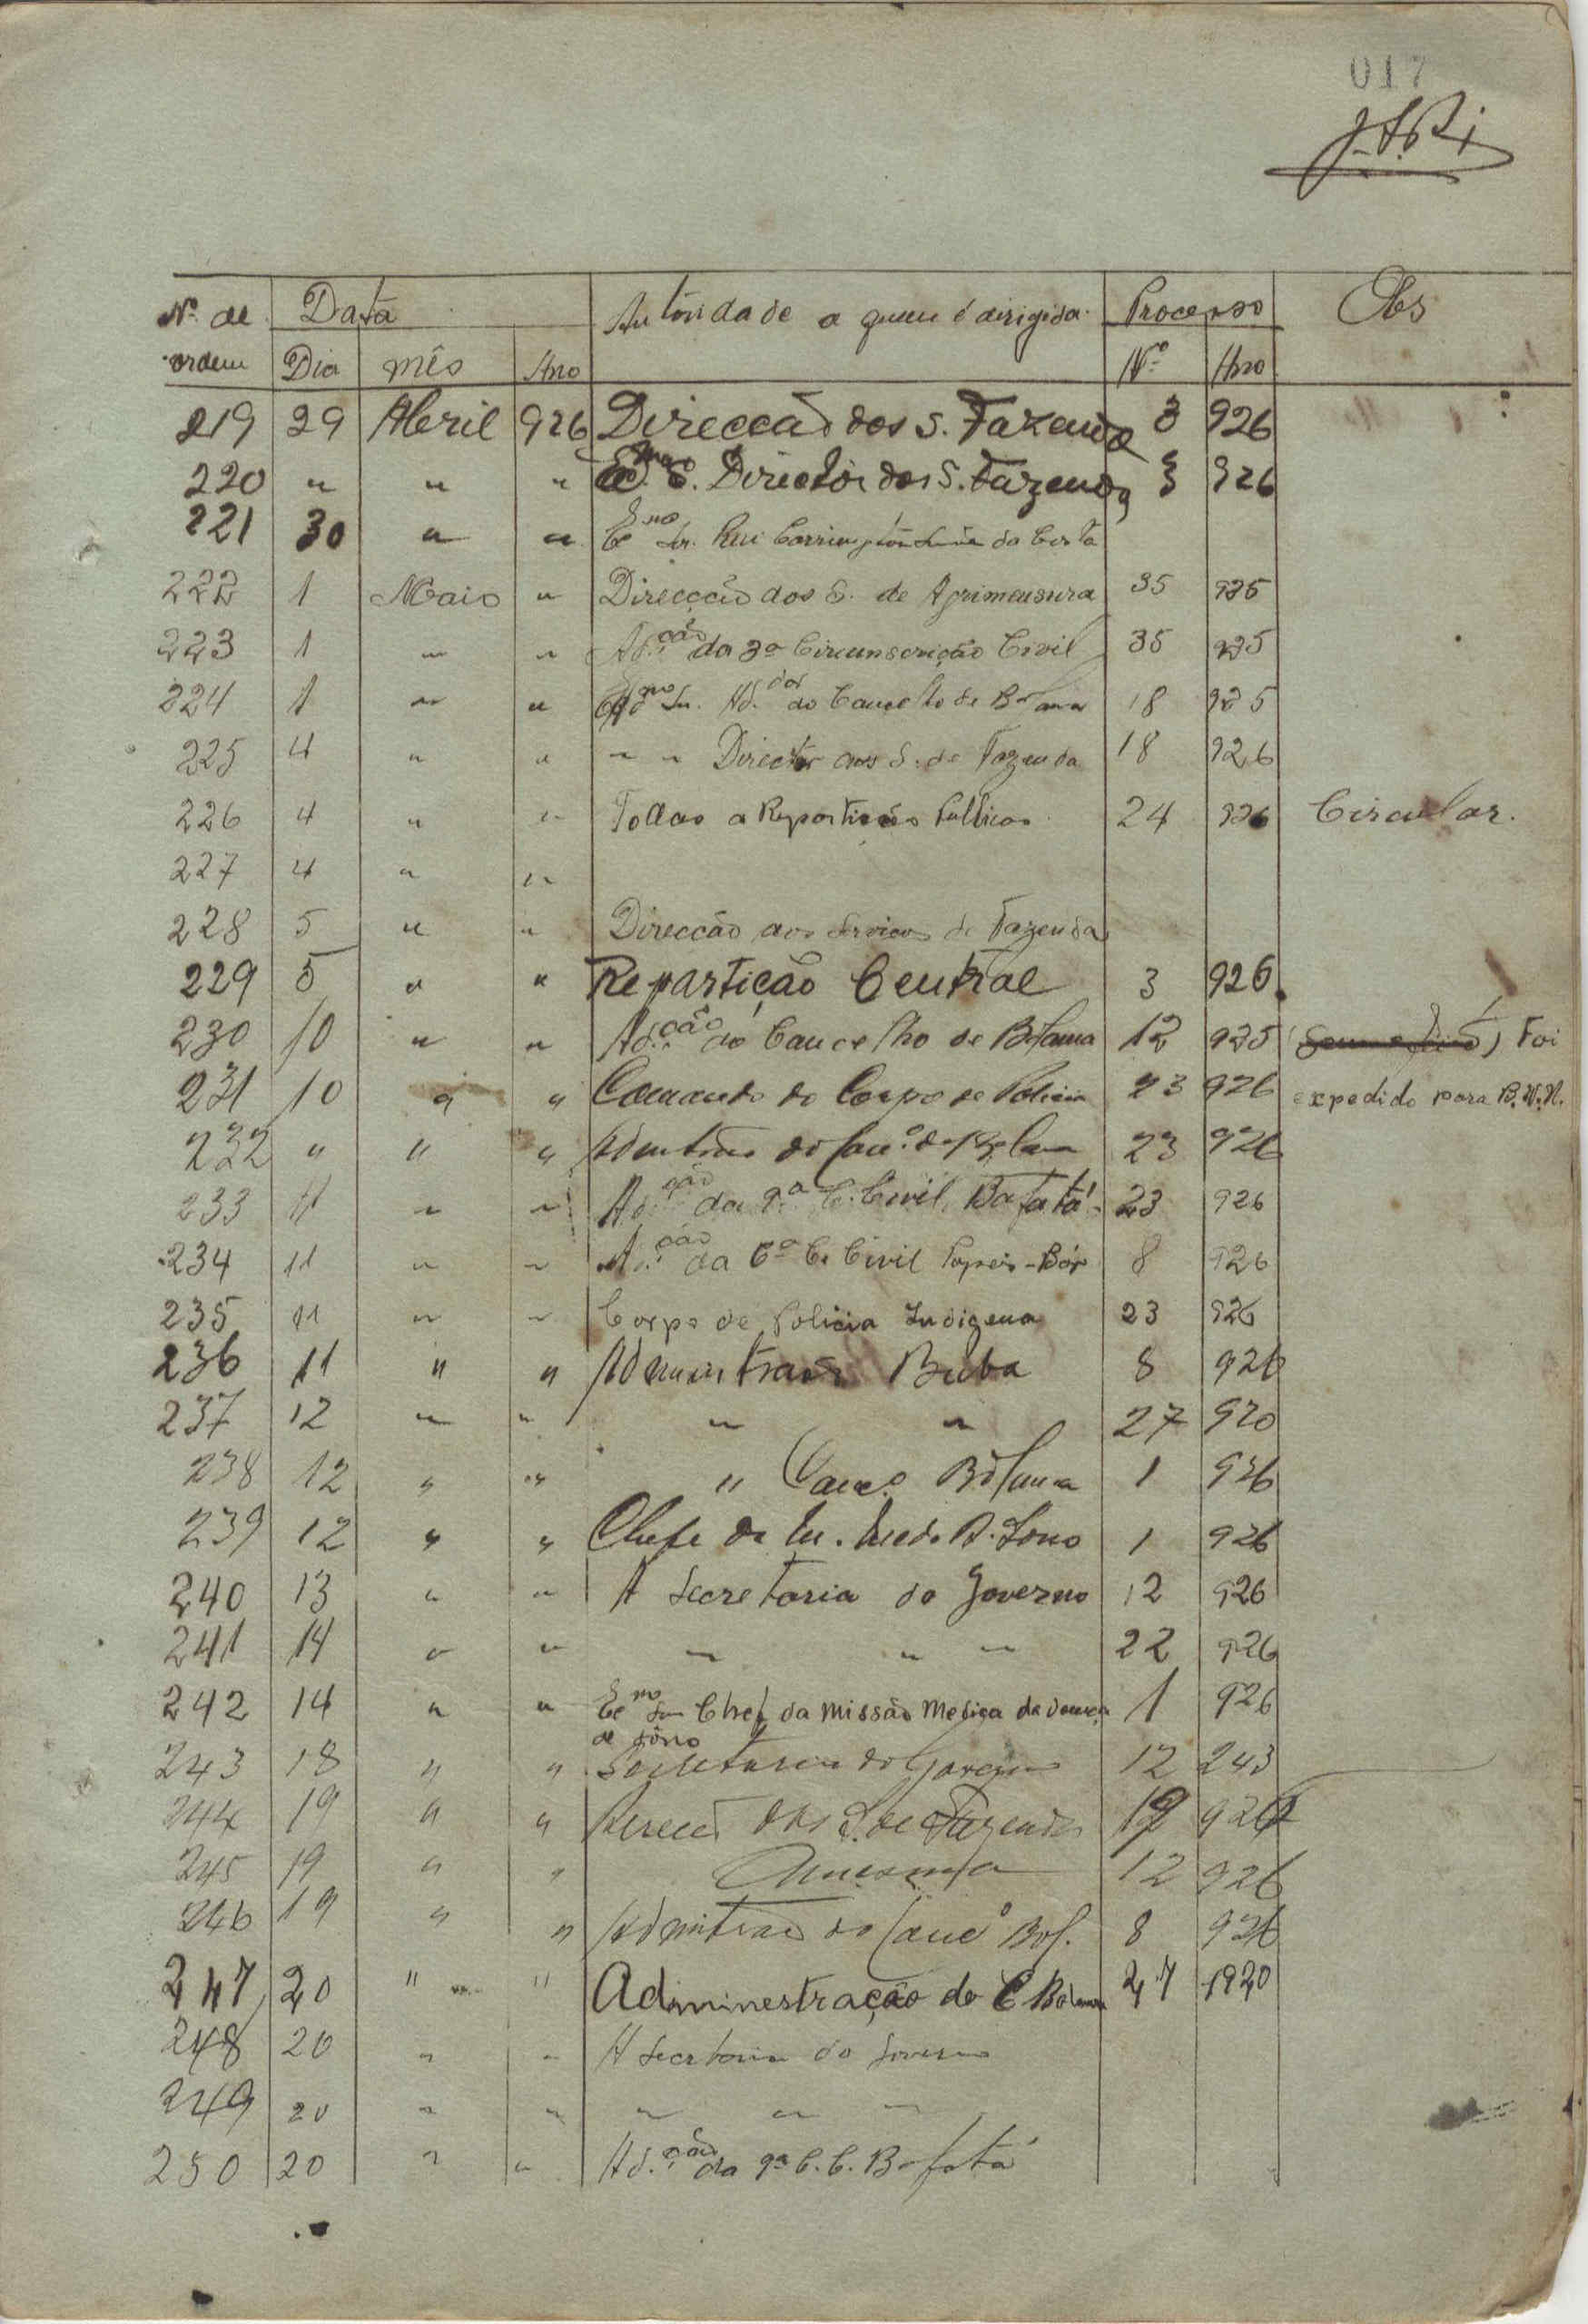 017
Nº de Data Autoridade a quem é dirigida Processo Obs
ordem Dia Mês Ano Nº Ano
219 29 Abril 926 Direccão dos S. Fazenda 3 926
220 " " " Exmo S. Director dos S. Fazenda 3 926
221 30 " " Exmo Sr. Rui da Costa
222 1 Maio " Direcção dos S. de Agrimensura 35 925
223 1 " " Ad.ção da 3ª Circunscrição Civil 35 925
224 1 " " Exmo Sr. Ad.dor do Concelho de Bolama 18 925
225 4 " " " " Director dos S. de Fazenda 18 926
226 4 " " Todas a Repartições Publicas 24 926 Circular.
227 4 " "
228 5 " " Direccão dos Serviços de Fazenda
229 5 " " Repartição Central 3 926
230 10 " " Ad.ção do Concelho de Bolama 12 925 Foi
231 10 " " Comando do Corpo de Policia 23 926 expedido para B.N.U.
232 " " " do Conc.º de Bolama 23 926
233 11 " " Ad.ção da 9ª C. Civil Bafatá 23 926
234 11 " " Ad.ção da 6ª C. Civil Papeis-Bór 8 926
235 11 " " Corpo de Policia Indigena 23 926
236 11 " " Buba 8 926
237 12 " " " " 27 920
238 12 " " " Conc.º Bolama 1 926
239 12 " " Chefe da D. Sono 1 926
240 13 " " A Secretaria do Governo 12 926
241 14 " " " " " 22 926
242 14 " " Exmo Sr Chef da Missão Medica da Doença 1 926
de sôno
243 18 " " Secretaria do Governo 12 243
244 19 " " dos S. de Fazenda 12 926
245 19 " " A mesma 12 926
246 19 " " do Conc.º Bol. 8 926
247 20 " " Adminestração do C Bolama 27 1920
248 20 " " A Secretaria do Governo
249 20 " " " " "
250 20 " " Ad.ção da 9ª C. C. Bafatá